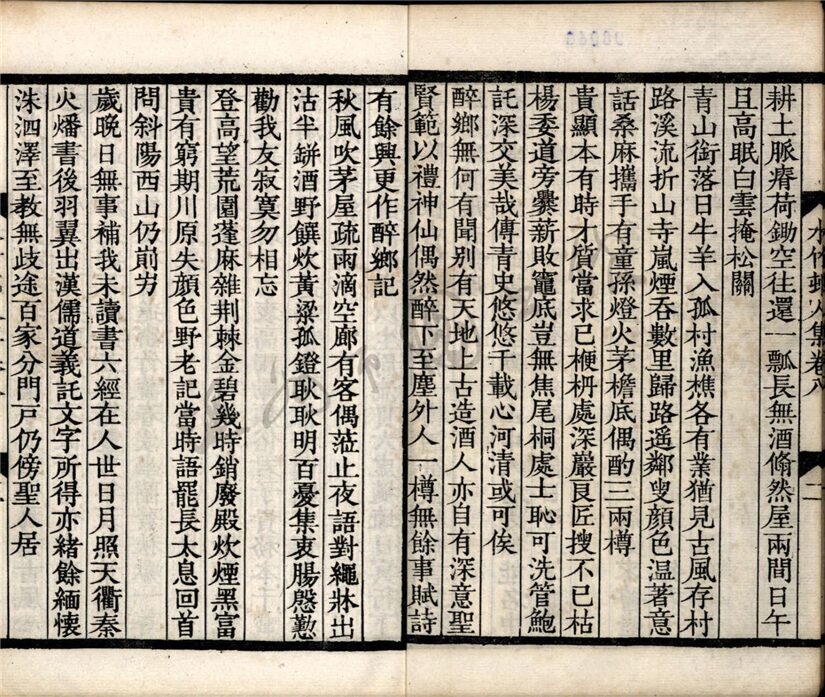 水竹邨人集卷八
耕土脈瘠荷鋤空往還一瓢長無酒翛然屋兩間日午
且高眠白雲掩松關
青山銜落日牛羊入孤村漁樵各有業猶見古風存村
路溪流折山寺嵐煙吞數里歸路遥鄰叟顏色温著意
話桑麻攜手有童孫燈火茅檐底偶酌三兩樽
貴顯本有時才質當求已楩枬處深巖良匠搜不已枯
楊委道旁爨薪敗竈底豈無焦尾桐處士恥可洗管鮑
託深交美哉傳青史悠悠千載心河清或可俟
醉鄉無何有聞别有天地上古造酒人亦自有深意聖
賢範以禮神仙偶然醉下至塵外人一樽無餘事賦詩
有餘興更作醉鄉記
秋風吹茅屋疏雨滴空廊有客偶蒞止夜語對繩牀出
沽半缾酒野饌炊黃粱孤鐙耿耿明百憂集衷腸慇懃
勸我友寂寞勿相忘
登高望荒園蓬麻雜荆棘金碧幾時銷廢殿炊煙黑富
貴有窮期川原失顏色野老記當時語罷長太息回首
問斜陽西山仍前岃
歲晚日無事補我未讀書六經在人世日月照天衢秦
火燔書後羽翼出漢儒道義託文字所得亦緒餘緬懷
洙泗澤至教無歧途百家分門戸仍傍聖人居